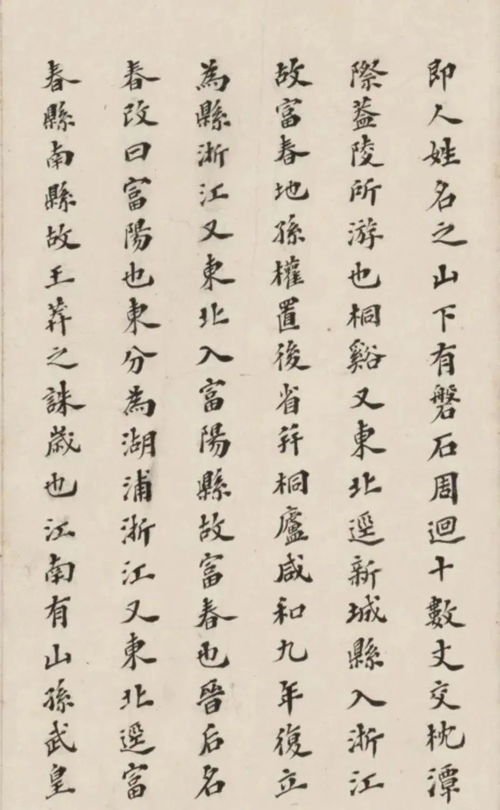 即人姓名之山下有磐石周迴十數丈交枕潭
際葢陵所游也桐谿又東北逕新城縣入浙江
故富春地孫權置後省并桐廬咸和九年復立
為縣浙江又東北入富陽縣故富春也晉后名
春改曰富陽也東分為湖浦浙江又東北逕富
春縣南縣故王莽之誅歲也江南有山孫武皇